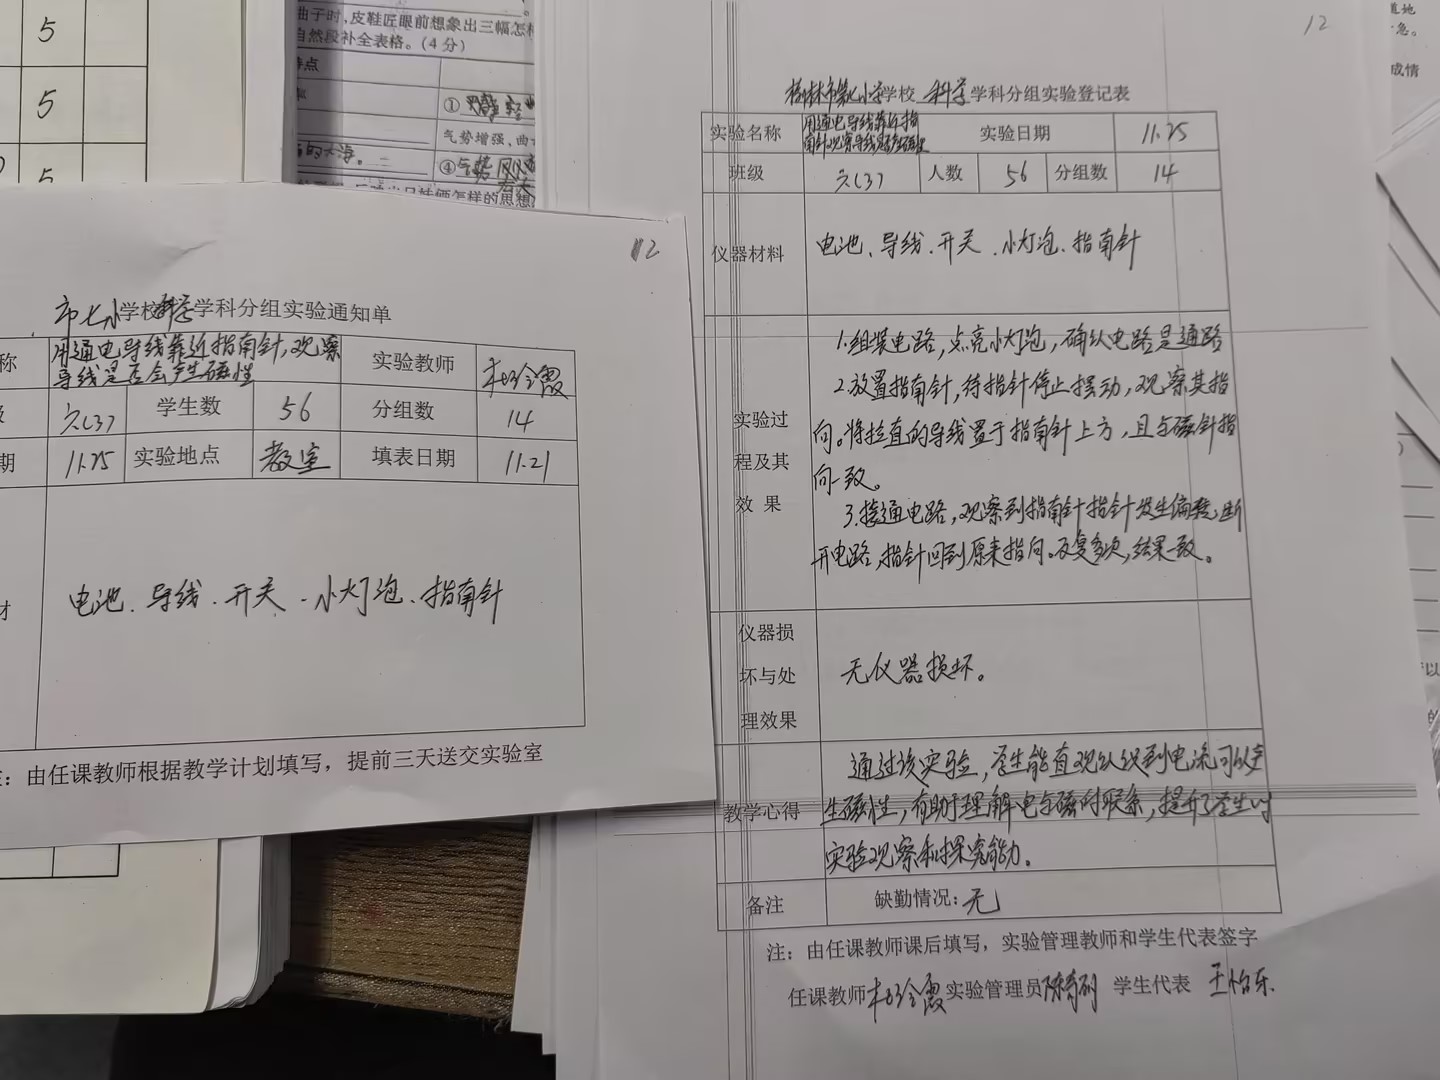 5
5
5
曲子时,皮鞋匠眼前想象出三幅怎
自然段补全表格。(4分)
气势增强,曲
12
市七小学校科学学科分组实验通知单
称 用通电导线靠近指南针,观察 实验教师
导线是否会产生磁性
级 六(3) 学生数 56 分组数 14
期 11.25 实验地点 教室 填表日期 11.21
材 电池、导线、开关、小灯泡、指南针
:由任课教师根据教学计划填写,提前三天送交实验室
12
榆林市第七小学学校 科学 学科分组实验登记表
实验名称 用通电导线靠近指 实验日期 11.25
南针观察导线是否产生磁性
班级 六(3) 人数 56 分组数 14
仪器材料 电池、导线、开关、小灯泡、指南针
1.组装电路,点亮小灯泡,确认电路是通路
2.放置指南针,待指针停止摆动,观察其指
实验过 向。将拉直的导线置于指南针上方,且与磁针指
程及其 向一致。
效 果 3.接通电路,观察到指南针指针发生偏转,断
开电路,指针回到原来指向。反复多次,结果一致。
仪器损
坏与处 无仪器损坏。
理效果
通过该实验,学生能直观认识到电流可以产
教学心得 生磁性,有助于理解电与磁的联系,提升了学生的
实验观察和探究能力。
备注 缺勤情况:无
注:由任课教师课后填写,实验管理教师和学生代表签字
任课教师 实验管理员 学生代表 王怡乐